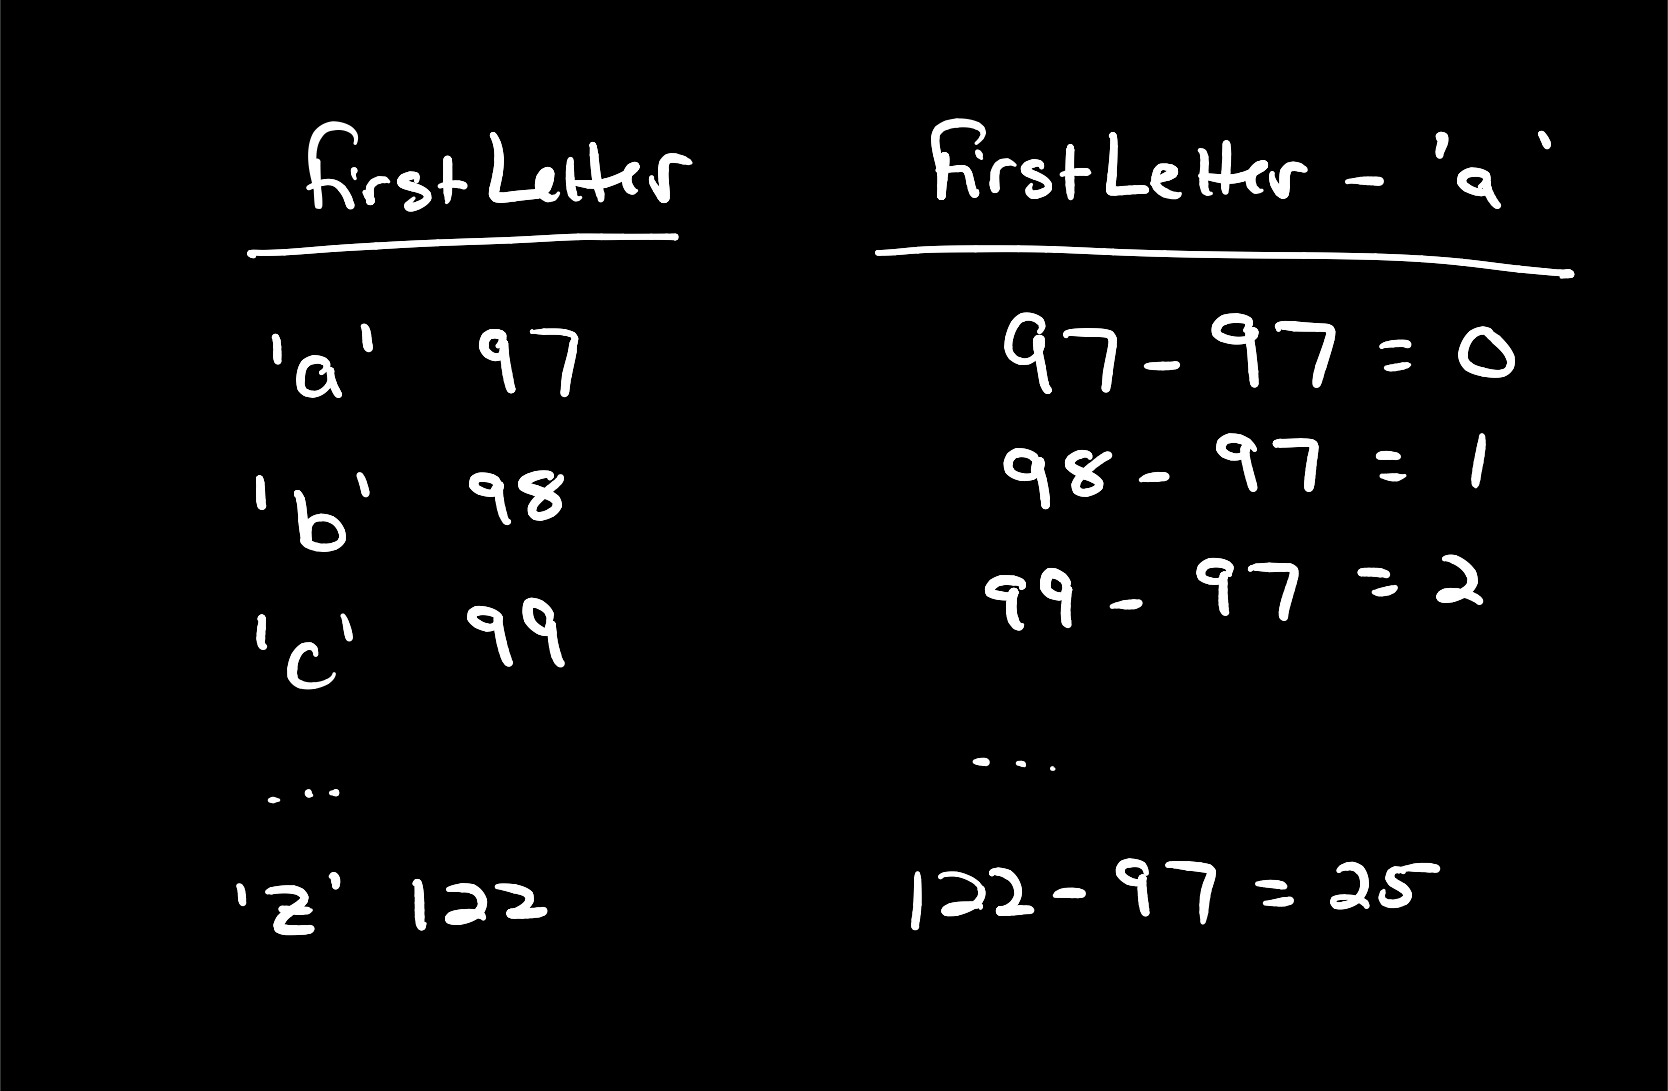 firstLetter firstLetter - 'a'
'a' 97 97 - 97 = 0
'b' 98 98 - 97 = 1
'c' 99 99 - 97 = 2
... ...
'z' 122 122 - 97 = 25